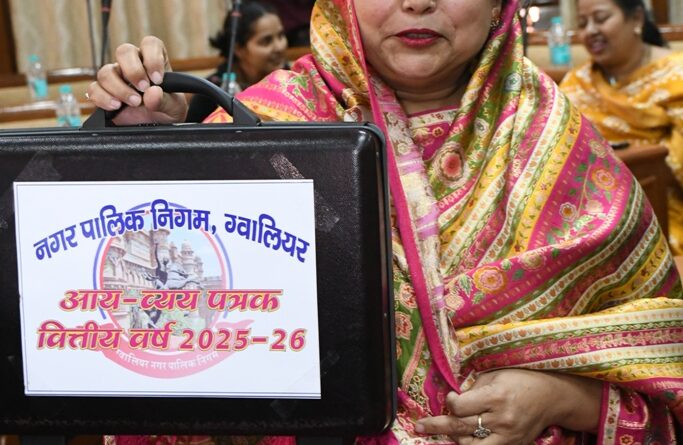 नगर पालिक निगम, ग्वालियर
आय-व्यय पत्रक
वित्तीय वर्ष 2025-26
ग्वालियर नगर पालिका निगम